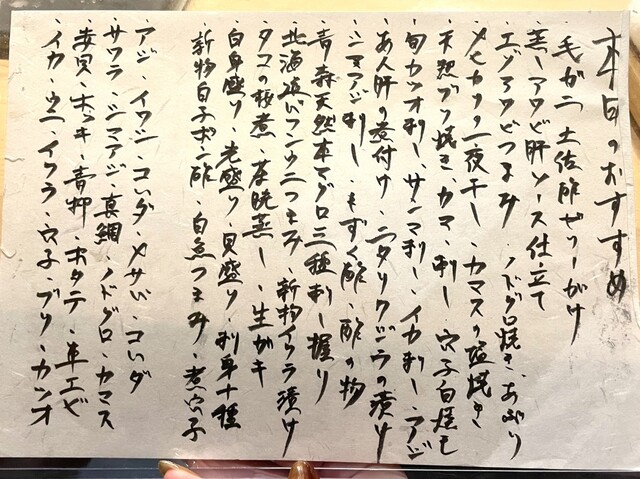 本日のおすすめ
・毛ガニ 土佐酢ゼリーがけ
・蒸しアワビ肝ソース仕立て
・エゾアワビつまみ ・ノドグロ焼き、あぶり
・メヒカリ一夜干し ・カマスの塩焼き
・天然ブリ焼き・カマ・刺し 穴子白焼も
・旬カツオ刺し、サンマ刺し・イカ刺し・アジ
・あん肝の煮付け・ニタリクジラの漬け
・シマアジ刺し・もずく酢・酢の物
・青森天然本マグロ三種刺し握り
・北海道バフンウニつまみ・新物イクラ漬け
・タコの桜煮・茶碗蒸し・生ガキ
・白身盛り・光盛り・貝盛り・刺身十種
・新物白子ポン酢・白魚つまみ・煮穴子
・アジ・イワシ・コハダ・メサバ・コハダ
・サワラ・シマアジ・真鯛・ノドグロ・カマス
・赤貝・ホッキ・青柳・ホタテ・車エビ
・イカ・ウニ・イクラ・穴子・ブリ・カツオ